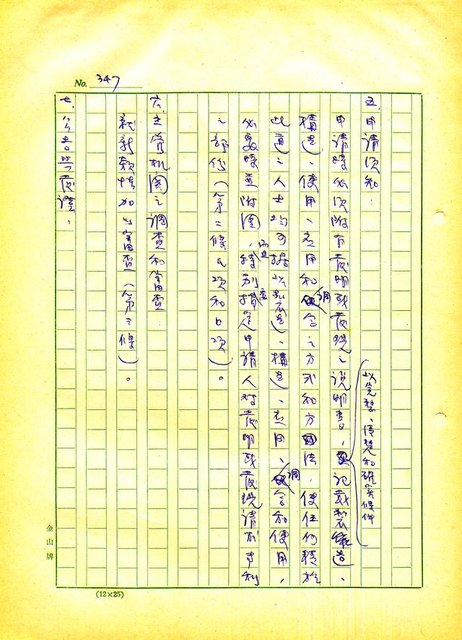 No. 347
五、申請須知：
申請時必須附有發明或發現之說明書，記載製造、
以完整、清楚和確實條件
構造、使用、應用和調合之方式和方法，使任何精於
此道之人士均可據以製造、構造、應用、調合和使用，
必要時並附圖，特別指定申請人對發明或發現請求專利
之部份（第二條A項和B項）。
六、主管機關之調查和審查
就新穎性加以審查（第三條）。
七、公告與發證：
金山牌
(12×25)